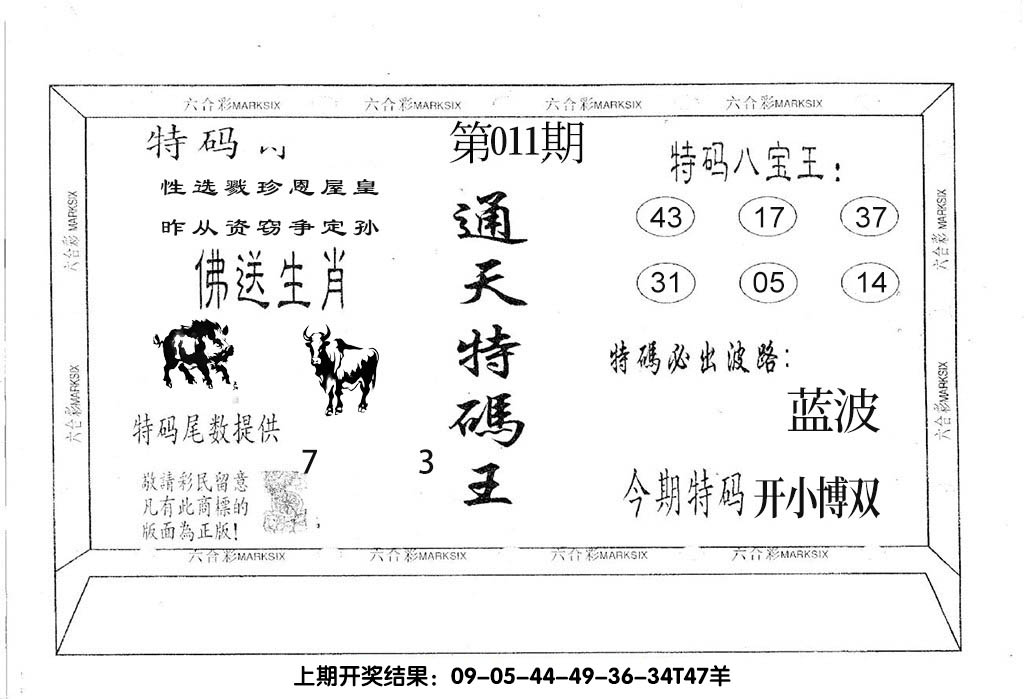 六合彩MARKSIX 六合彩MARKSIX 六合彩MARKSIX 六合彩MARKSIX
特码
第011期
性选戮珍恩屋皇
昨从资窃争定孙
佛送生肖
特码尾数提供
7 3
敬請彩民留意
凡有此商標的
版面為正版!
通天特碼王
特码八宝王:
43 17 37
31 05 14
特碼必出波路:
蓝波
今期特码开小博双
六合彩MARKSIX
六合彩MARKSIX
六合彩MARKSIX
六合彩MARKSIX
六合彩MARKSIX 六合彩MARKSIX 六合彩MARKSIX 六合彩MARKSIX
上期开奖结果：09-05-44-49-36-34T47羊